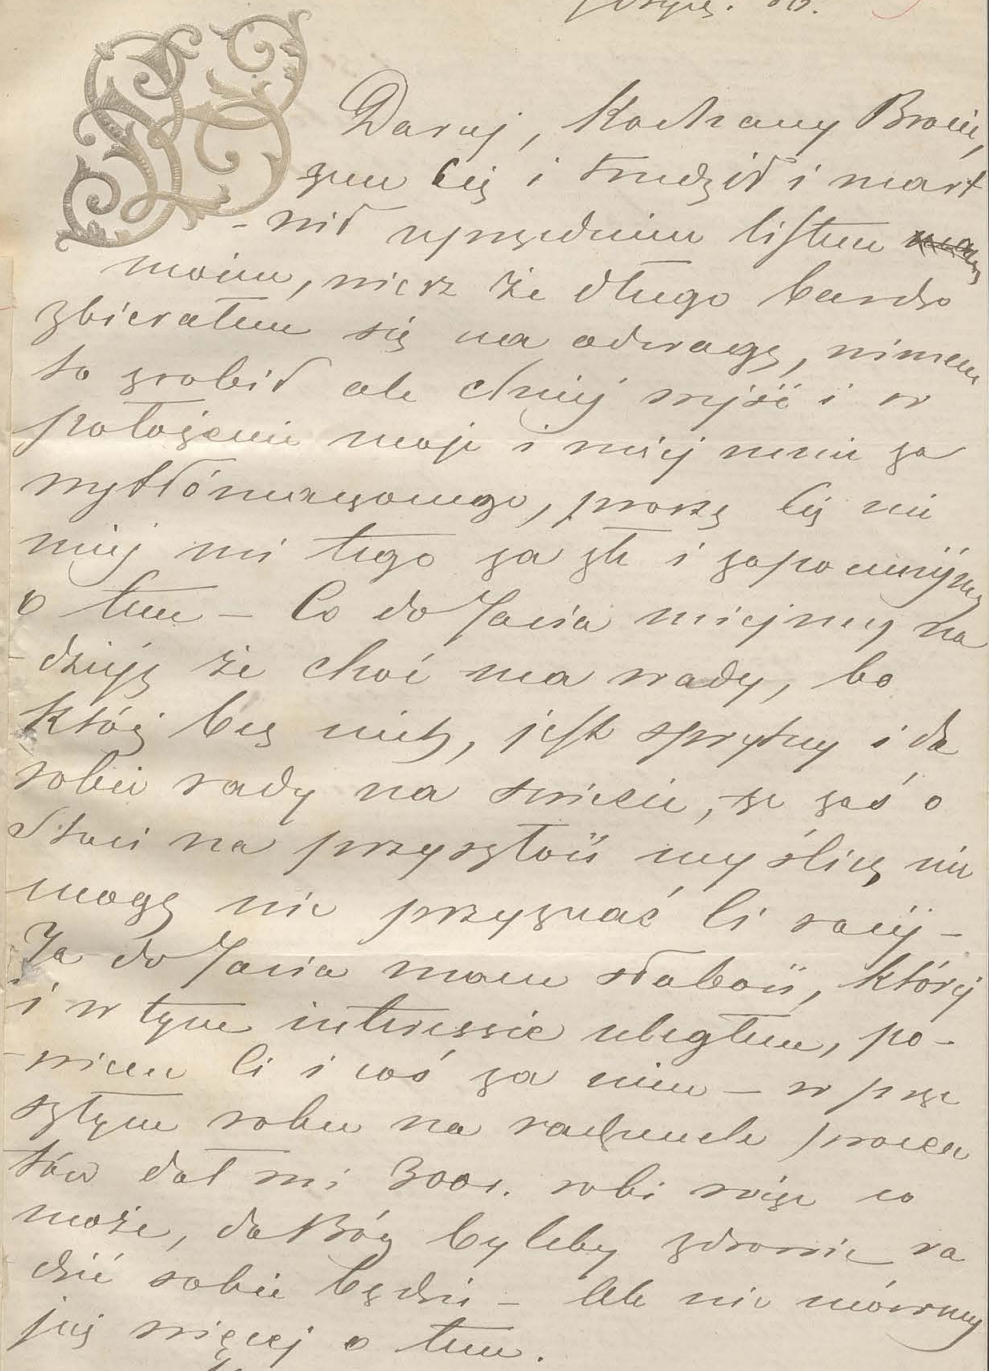 Daruj, Kochany Bracie,
żem Cię i trudził i mart
-wił uprzednim listem
moim, wiesz że długo bardzo
zbierałem się na odwagę, nimem
to zrobił ale chciej wejść i w
położenie moje i miej mnie za
wytłómaczonego, proszę Cię nie
miej mi tego za złe i zapomnijmy
o tem – Co do Jasia miejmy na
-dzieję że choć ma wady, bo
któż bez nich, jest sprytny i da
sobie rady na świecie, że zaś o
Staci na przyszłość myślisz, nie
mogę nie przyznać Ci racij –
Ja do Jasia mam słabość, której
i w tym interessie uległem, po-
-wiem Ci i coś za nim – w prze
szłym roku na rachunek procen
tów dał mi 300 r. robi więc co
może, da Bóg byleby zdrowie ra
dzić sobie będzie – Ale nie mówmy
już więcej o tem.